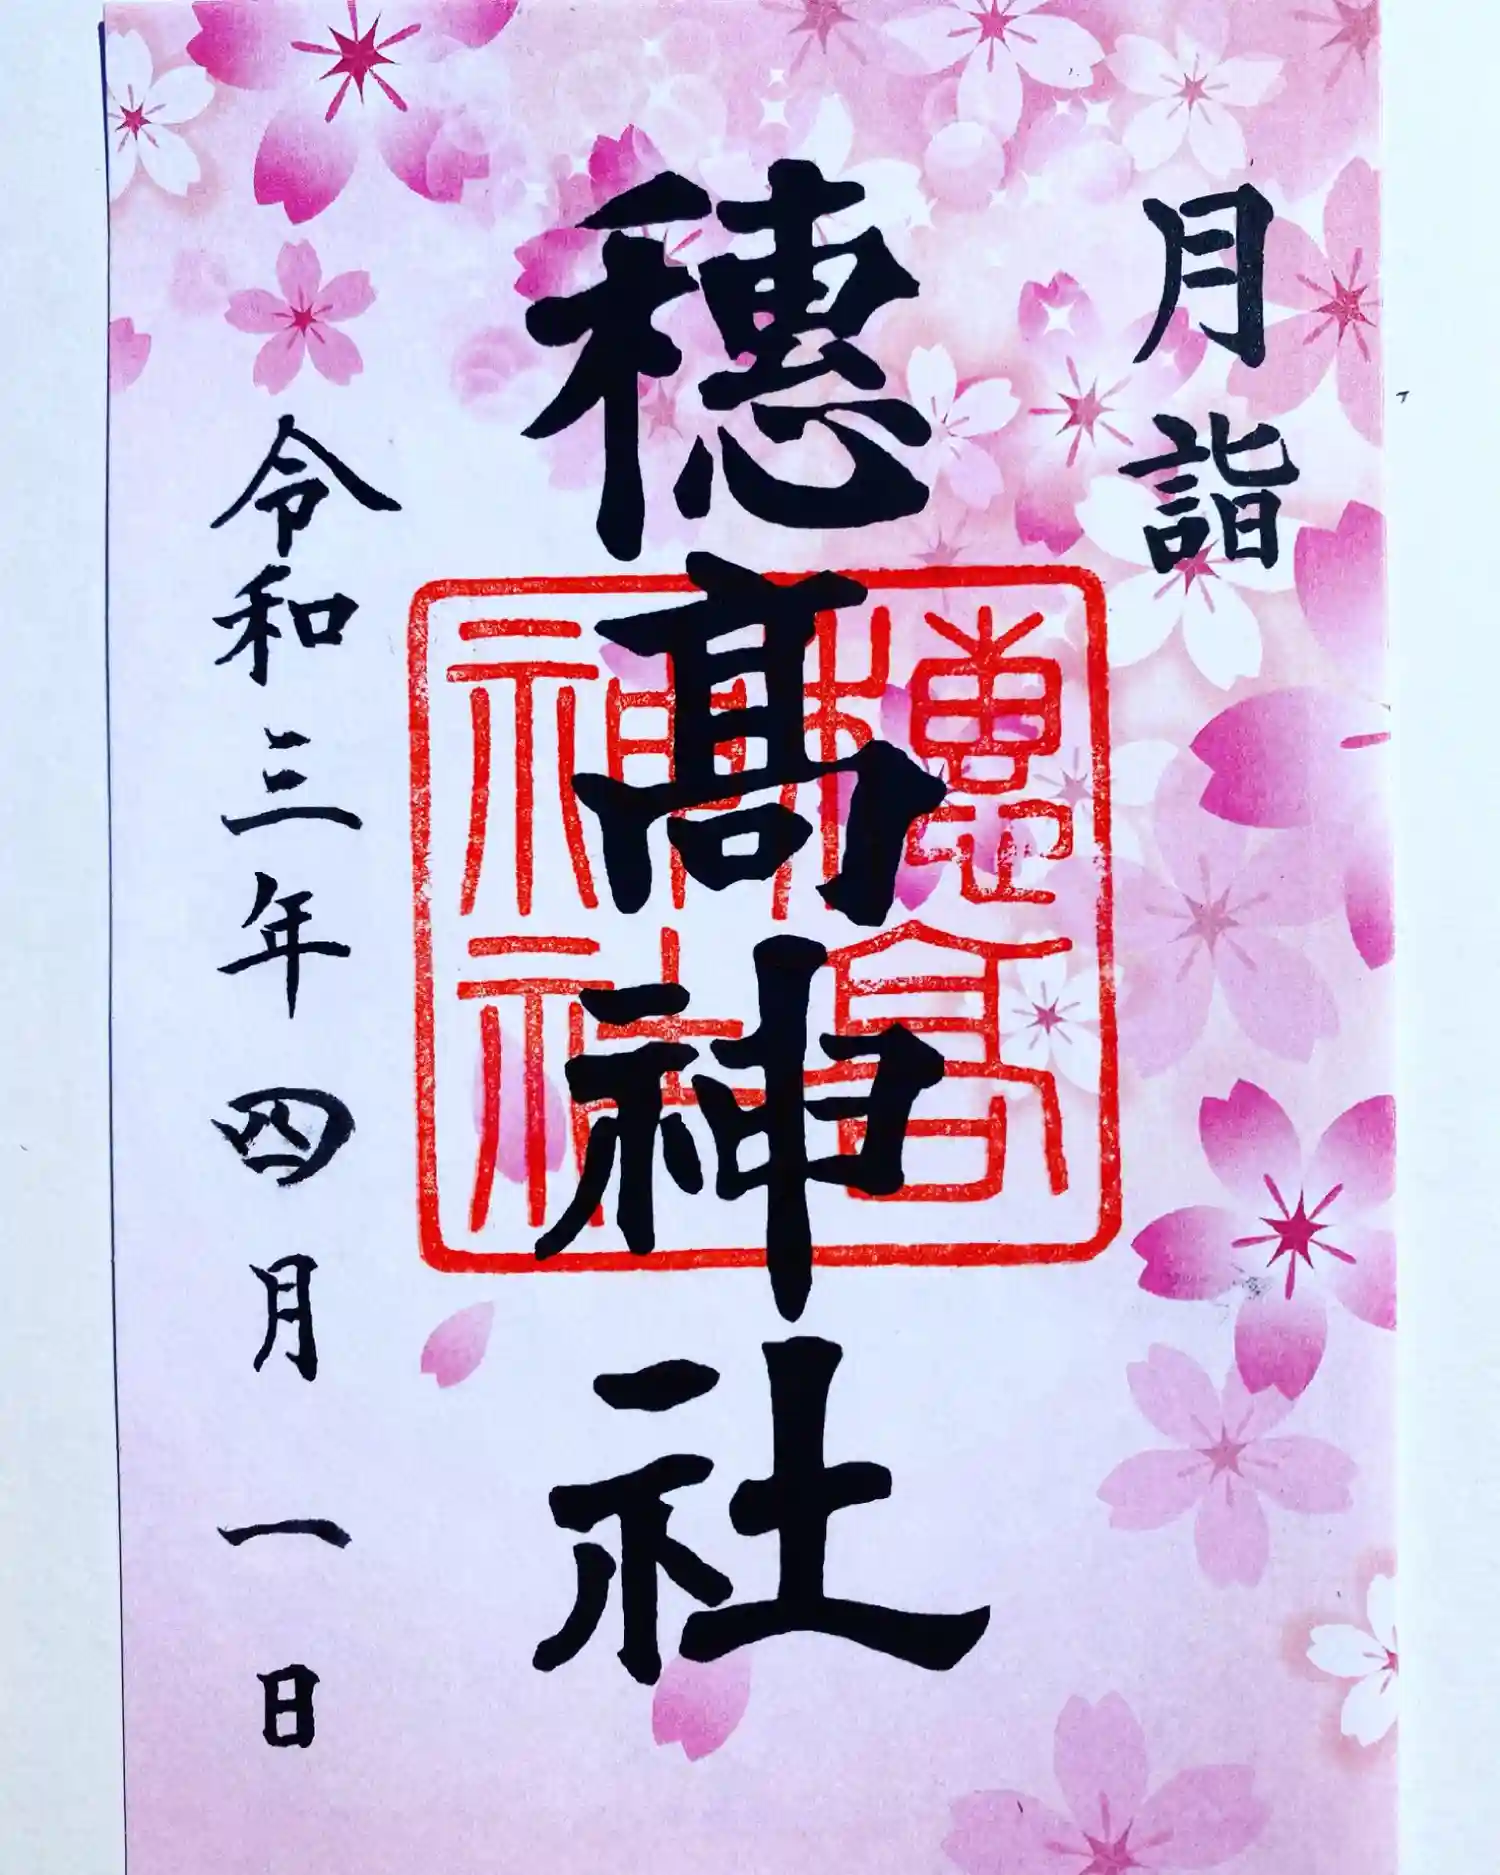 月詣
穗髙神社
穗高神社
令和三年四月一日